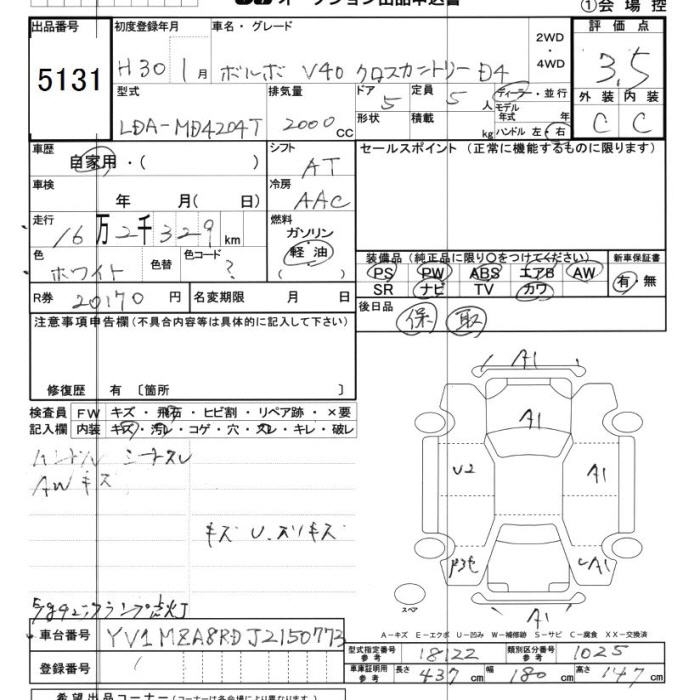 オークション出品申込書
①会場控
出品番号 初度登録年月 車名・グレード 2WD・4WD 評価点
5131 H30 1月 ボルボ V40 クロスカントリー D4 3.5
型式 排気量 ドア 定員 ディーラー・並行 外装 内装
LDA-MD4204T 2000cc 5 5人 モデル年式 年 C C
形状 積載 kg ハンドル 左・右
車歴 シフト セールスポイント(正常に機能するものに限ります)
自家用・( ) AT
車検 冷房
年 月( 日) AAC
走行 燃料
16万2千329km ガソリン
軽油
色 色替 色コード
ホワイト ? ( )
装備品(純正品に限り○をつけてください) 新車保証書
PS PW ABS エアB AW 有・無
SR ナビ TV カワ
R券 20170円 名変期限 月 日 後日品
保 取
注意事項申告欄(不具合内容等は具体的に記入して下さい)
修復歴 有〔箇所 〕
検査員 FW キズ・飛石・ヒビ割・リペア跡・×要
記入欄 内装 キズ・汚レ・コゲ・穴・スレ・キレ・破レ
ハンドル シートスレ
AWキズ
キズ U.スリキズ
A1
A1
U2 A1
A1
A1
スペア
エンジンランプ点灯
A-キズ E-エクボ U-凹み W-補修跡 S-サビ C-腐食 XX-交換済
車台番号 YV1MZA8RDJ2150773
型式指定番号 参考 18122 類別区分番号 参考 1025
登録番号
車庫証明用 参考 長さ 437cm 幅 180cm 高さ 147cm
希望出品コーナー(コーナーは各会場により異なります)